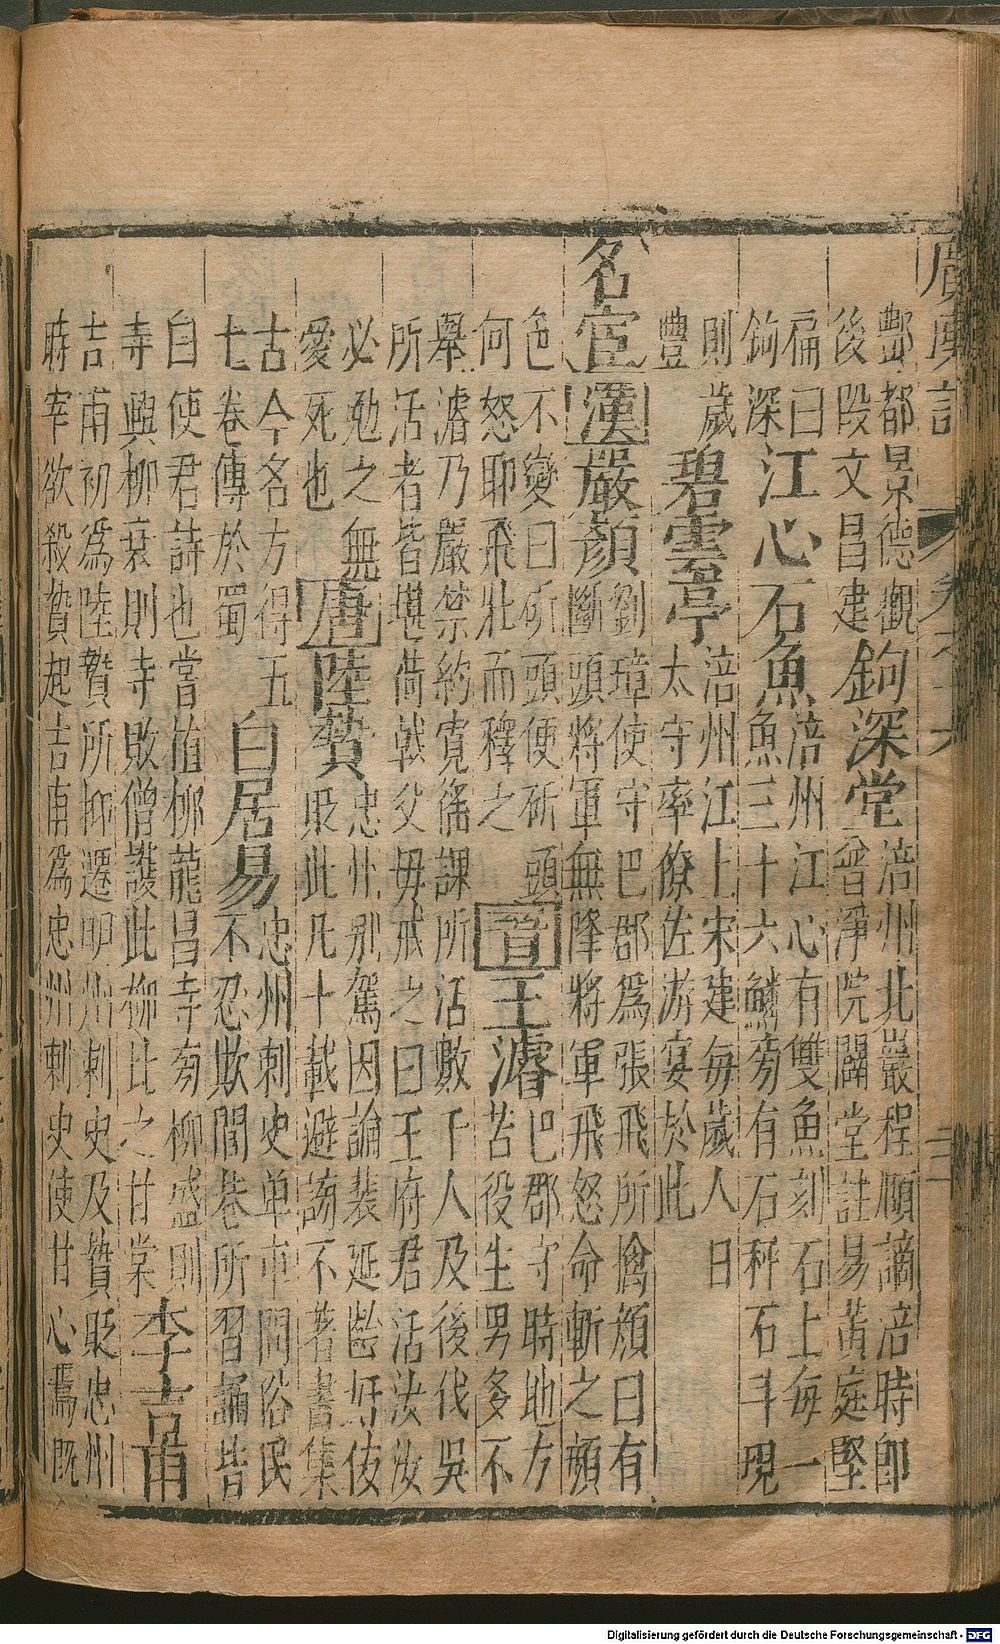 廣輿記 卷之十六
酆都景德觀
後段文昌建
鉤深堂
涪州北巖程頤謫涪時即
普淨院闢堂註易黃庭堅
扁曰
鉤深
江心石魚
涪州江心有雙魚刻石上每一
魚三十六鱗旁有石秤石斗現
則歲
豐
碧雲亭
涪州江上宋建每歲人日
太守率僚佐游宴於此
名宦漢嚴顏
劉璋使守巴郡爲張飛所擒顏曰有
斷頭將軍無降將軍飛怒命斬之顏
色不變曰斫頭便斫頭
何怒耶飛壯而釋之
晉王濬
巴郡守時地方
苦役生男多不
舉濬乃嚴禁約寬徭課所活數千人及後伐吳
所活者皆堪荷戟父毋戒之曰王府君活汝汝
必勉之無
愛死也
唐陸贄
忠州別駕因論裴延齡奸佞
貶此凡十載避謗不著書集
古今名方得五
七卷傳於蜀
白居易
忠州刺史单車問俗民
不忍欺閭巷所習誦皆
自使君詩也嘗植柳龍昌寺旁柳盛則
寺興柳衰則寺敗僧護此柳比之甘棠
李吉甫
吉甫初爲陸贄所抑遷明州刺史及贄貶忠州
時宰欲殺贄起吉甫爲忠州刺史使甘心焉既
Digitalisierung gefördert durch die Deutsche Forschungsgemeinschaft - DFG